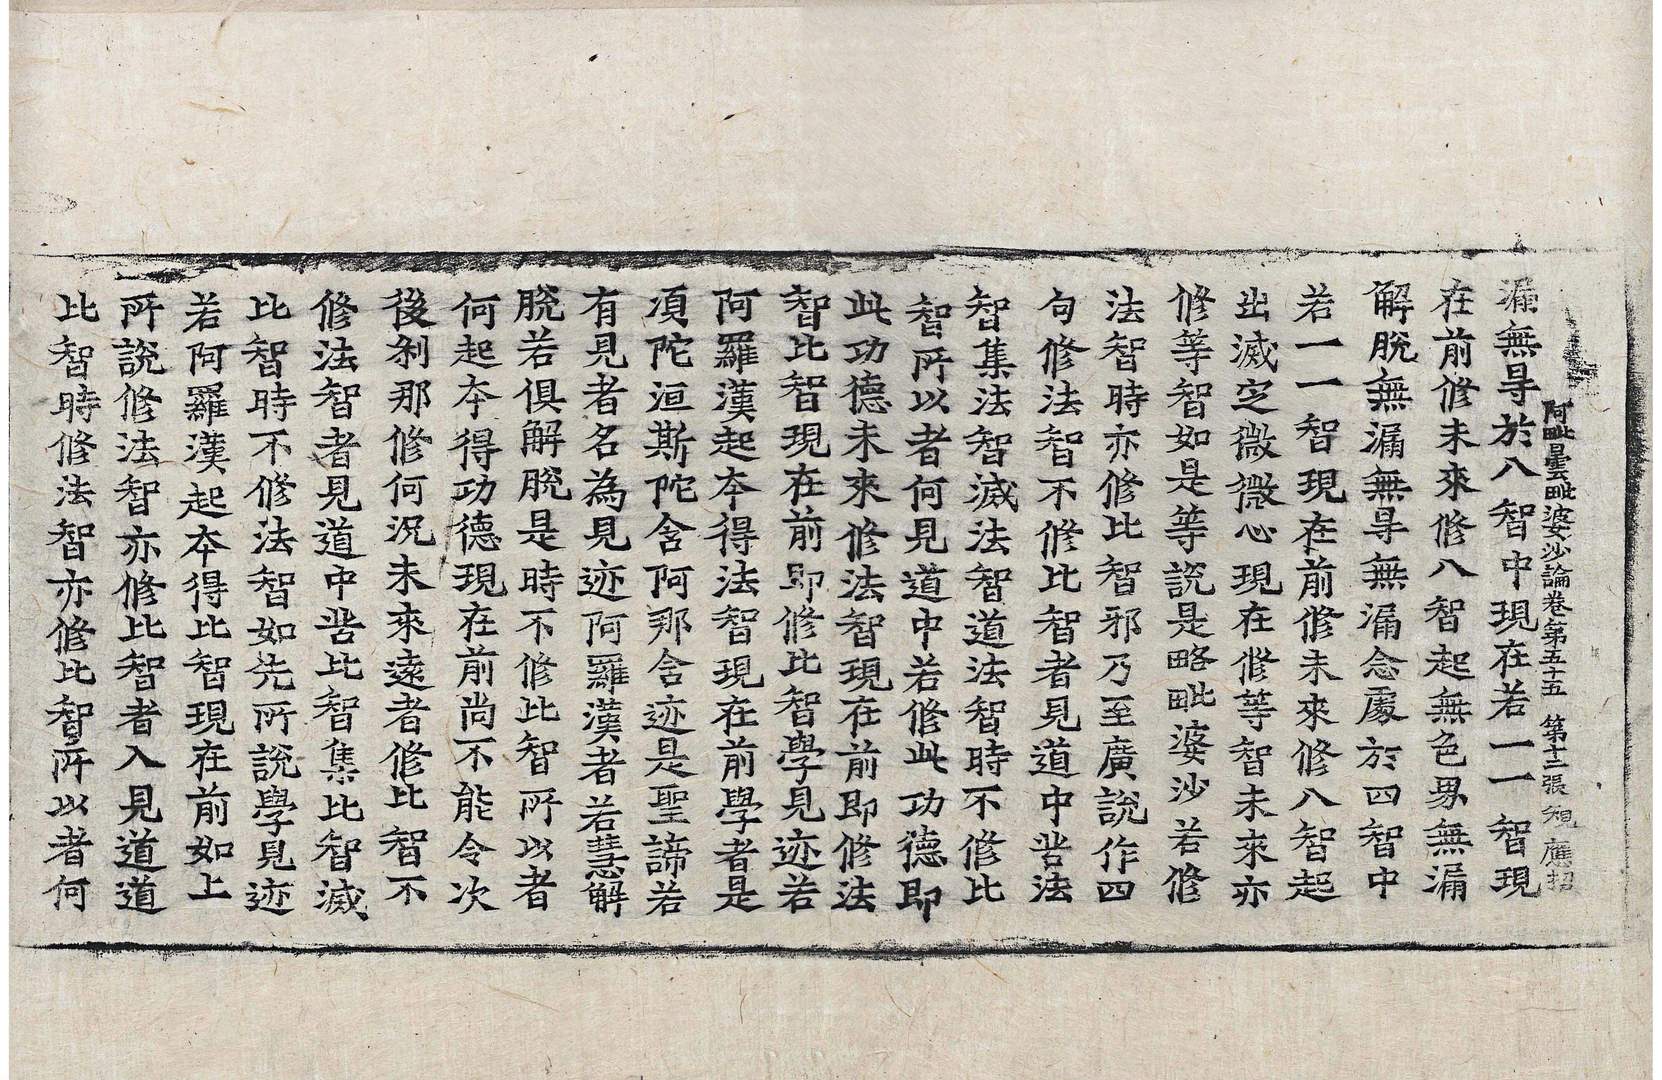 阿毗曇毗婆沙論卷第五十五　第十二張　㲋　應招
漏無㝵於八智中現在若一一智現
在前修未來修八智起無色界無漏
解脫無漏無㝵無漏念處於四智中
若一一智現在前修未來修八智起
出滅定微微心現在修等智未來亦
修等智如是等說是略毗婆沙若修
法智時亦修比智邪乃至廣說作四
句修法智不修比智者見道中苦法
智集法智滅法智道法智時不修比
智所以者何見道中若修此功德即
此功德未來修法智現在前即修法
智比智現在前即修比智學見迹若
阿羅漢起本得法智現在前學者是
須陀洹斯陀含阿那含迹是聖諦若
有見者名為見迹阿羅漢者若慧解
脫若俱解脫是時不修比智所以者
何起本得功德現在前尚不能令次
後剎那修何況未來遠者修比智不
修法智者見道中苦比智集比智滅
比智時不修法智如先所說學見迹
若阿羅漢起本得比智現在前如上
所說修法智亦修比智者入見道道
比智時修法智亦修比智所以者何